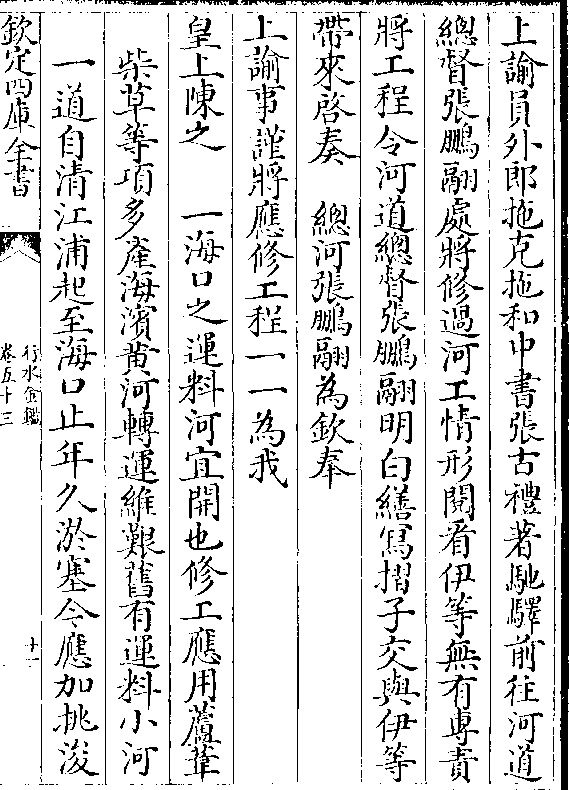 上諭員外郎拖克拖和中書張古禮著馳驛前往河道
總督張鵬翮處將修過河工情形閱看伊等無有專責
將工程令河道總督張鵬翮明白繕寫摺子交與伊等
帶來啓奏　總河張鵬翮為欽奉
上諭事謹將應修工程一一為我
皇上陳之　一海口之運料河宜開也修工應用蘆葦
柴草等項多產海濱黄河轉運維艱舊有運料小河
一道自清江浦起至海口止年久淤塞今應加挑浚
欽定四庫全書
行水金鑑
卷五十三
十一